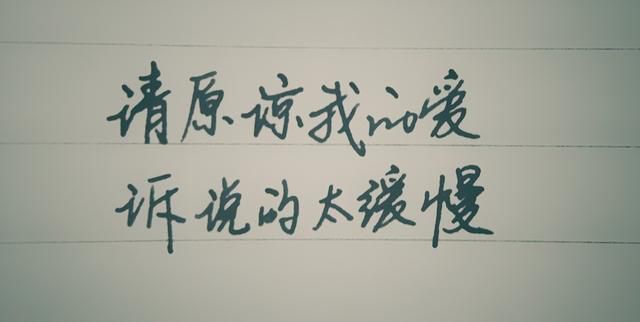 请原谅我的爱
诉说的太缓慢